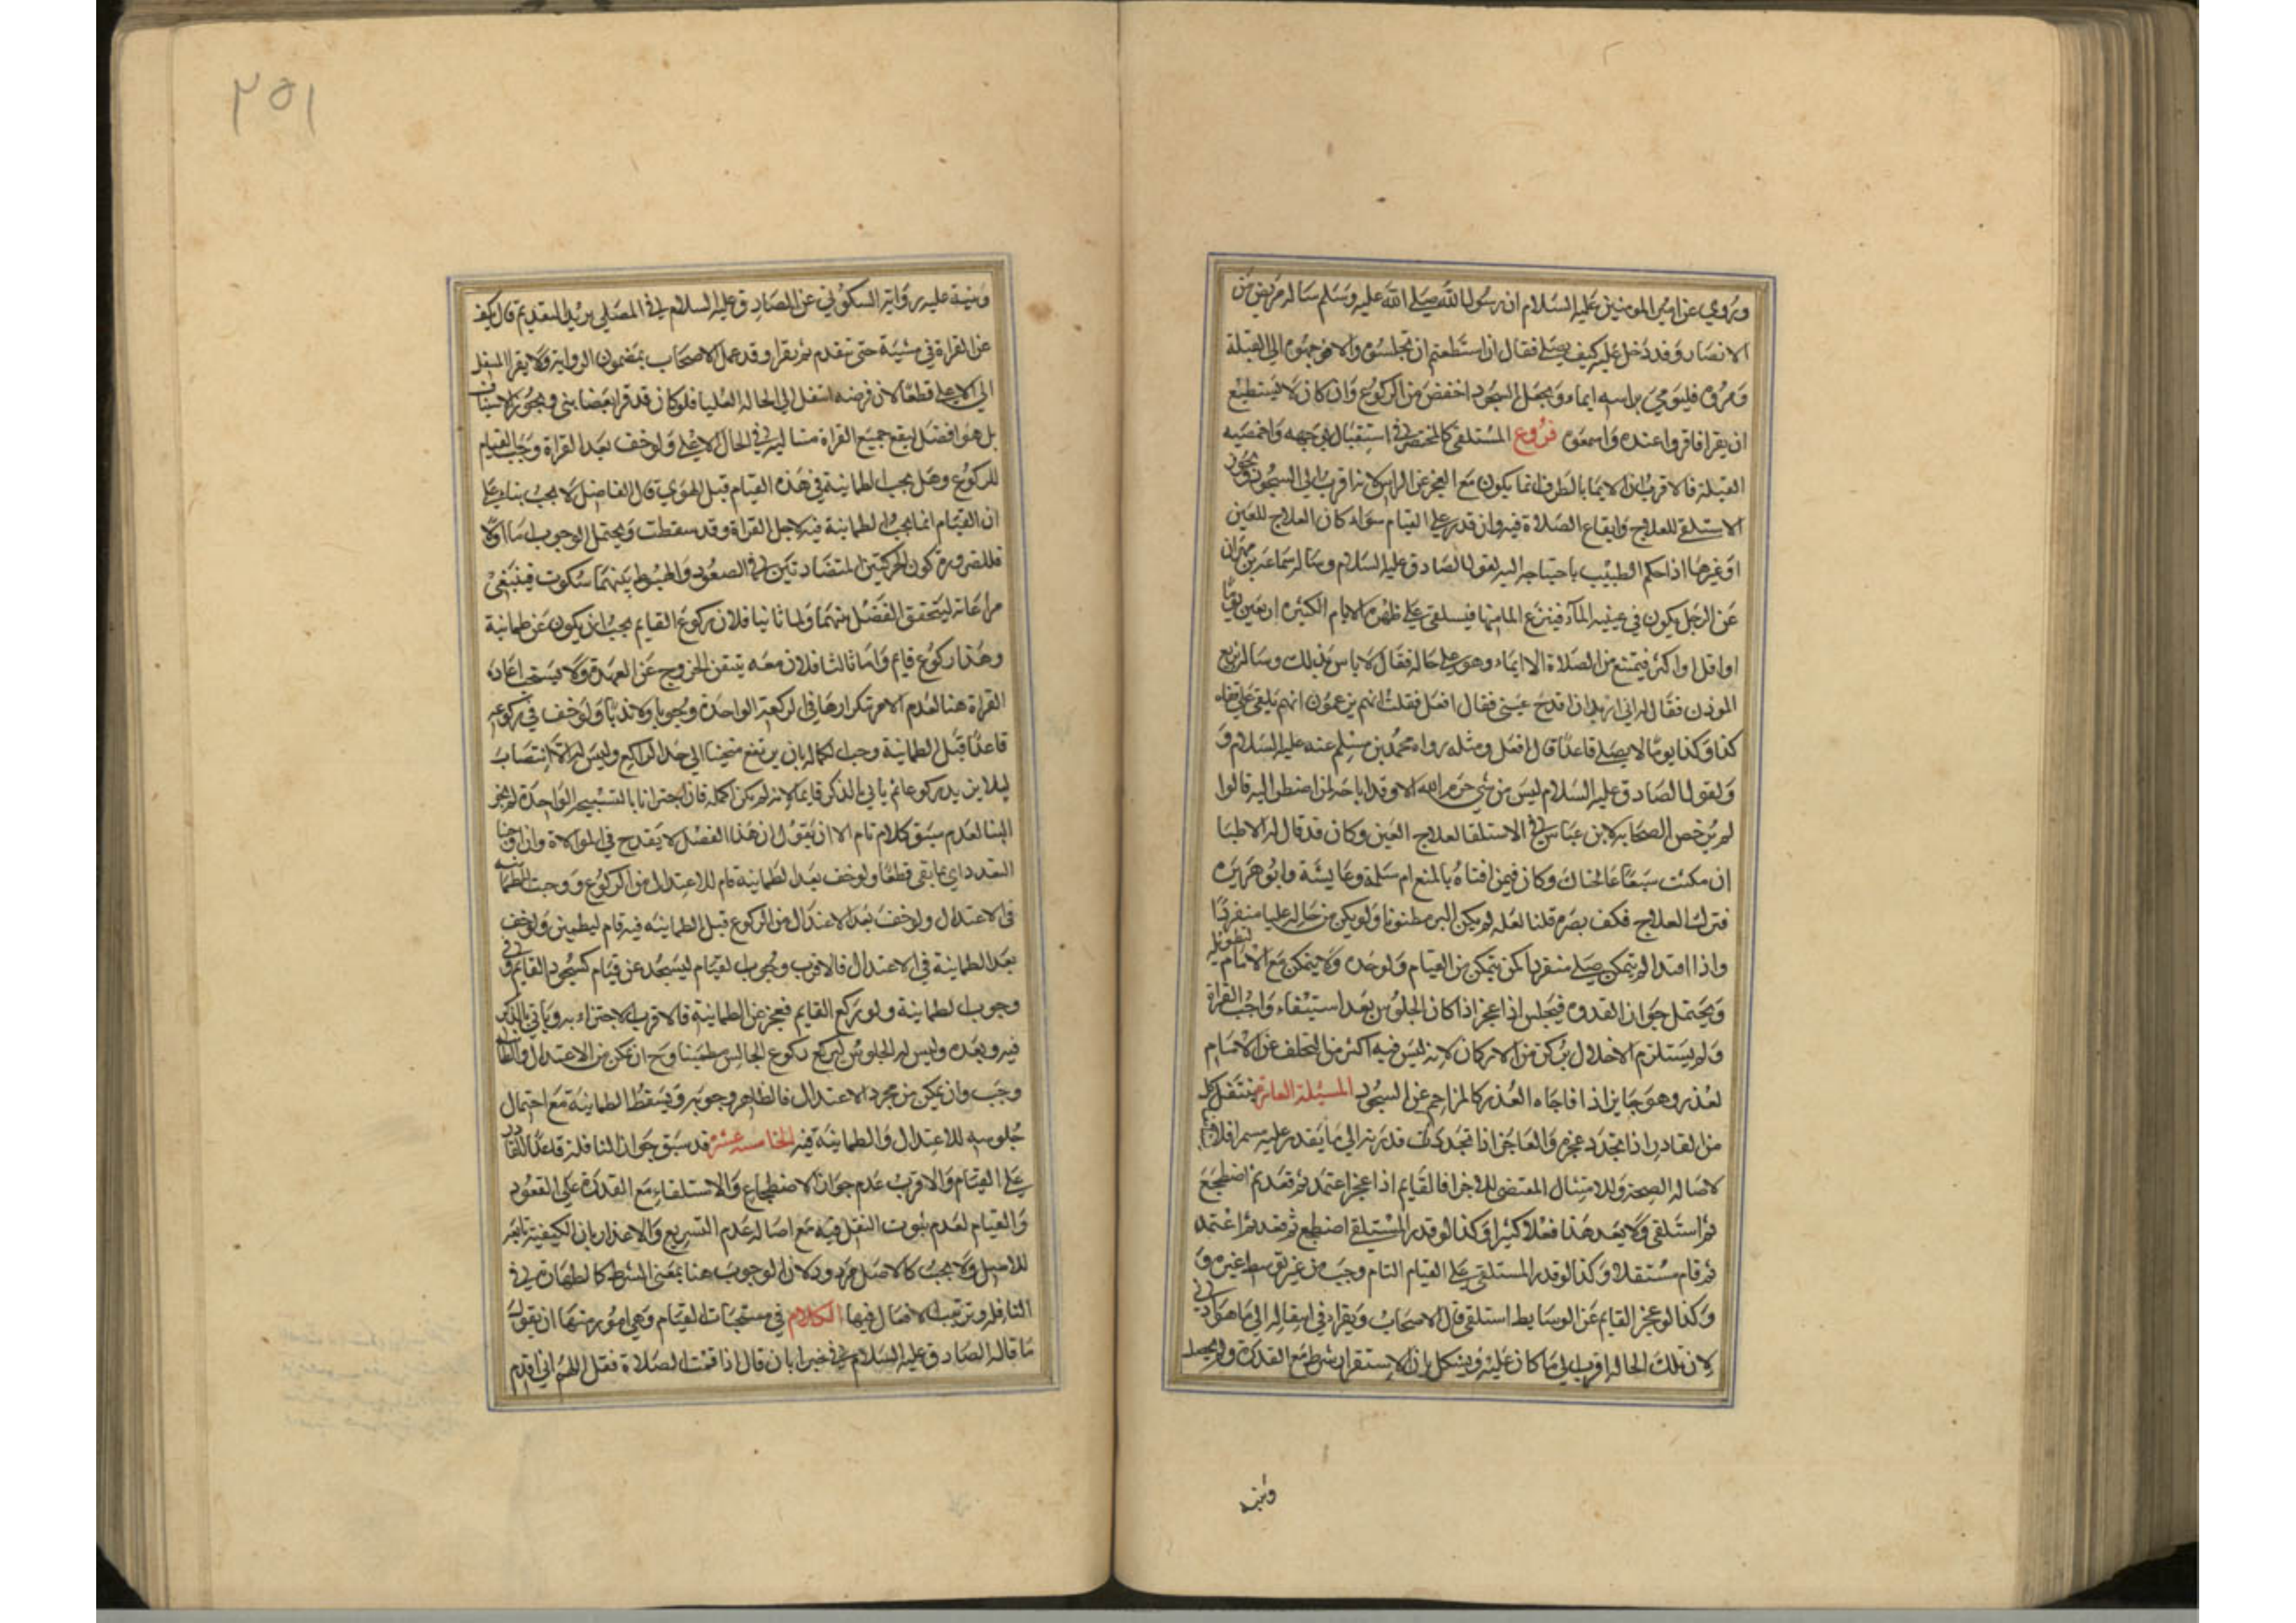 وروي عن امير المومنين عليه السلام ان رسول الله صلى الله عليه وسلم ساله مريض من
الانصار وقد دخل عليه كيف يصلي فقال ان استطعتم ان تجلسوه والا فوجهوه الى القبلة
ومروه فليومي براسه ايماء ويجعل السجود اخفض من الركوع وان كان لا يستطيع
ان يقرا فاقروا عنده واسمعوه فروع المستلقي كالمحتضر في استقبال بوجهه واخمصيه
القبلة فالاقرب ان الايما بالطرف انما يكون مع العجز عن الراس لانه اقرب الى السجود ويجوز
الاستلقي للعلاج وايقاع الصلاة فيه وان قدر على القيام سواء كان العلاج للعين
او غيرها اذا حكم الطبيب باحتياجه اليه لقول الصادق عليه السلام وساله سماعة بن مهران
عن الرجل يكون في عينيه الماء فينزع الما منها فيستلقي على ظهره الايام الكثيرة اربعين يوما
او اقل او اكثر فيمتنع من الصلاة الا ايماء وهو على حاله فقال لا باس بذلك وساله بزيع
الموذن فقال له اني اريد ان اقدح عيني فقال افعل فقلت انهم يزعمون انه يلقى على قفاه
كذا وكذا يوما لا يصلي قاعدا قال افعل ومثله رواه محمد بن مسلم عنه عليه السلام و
ولقول الصادق عليه السلام ليس من شي حرم الله الا وقد اباحه لمن اضطر اليه قالوا
لم يرخص الصحابه لابن عباس في الاستلقا لعلاج العين وكان قد قال له الاطبا
ان مكثت سبعا عالجناك وكان فيمن افتاه بالمنع ام سلمة وعايشة وابو هريره
فترك العلاج فكف بصره قلنا لعله لم يكن البرء مظنونا ولو يكن من حاله عليا منفردا
واذا اقتدا لم يتمكن صلى منفردا كمن يتمكن من القيام ولو حده ولا يتمكن مع الامام لتطويله
ويحتمل جواز القدوه فيجلس اذا عجز اذا كان الجلوس بعد استيفاء واجب القراة
ولو يستلزم الاخلال بركن من الاركان لانه ليس فيه اكثر من التخلف عن الامام
لعذر وهو جايز اذا فاجاه العذر كالمزاحم عن السجود المسئلة العاشره ينتقل كل
من القادر اذا تجدد عجزه والعاجز اذا تجددت قدرته الى ما يقدر عليه مستمرا
لاصالة الصحة وللامتثال المقتضي للاجزا فالقايم اذا عجز اعتمد ثم قعد ثم اضطجع
ثم استلقى ولا يعد هذا فعلا كثيرا وكذا لو قدر المستلقي اضطجع ثم قعد ثم اعتمد
ثم قام مستقلا وكذا لو قدر المستلقي على القيام التام وجب من غير توسط غيره و
وكذا لو عجز القايم عن الوسايط استلقى قال الاصحاب ويقرا في انتقاله الى ما هو ادنى
لان تلك الحالة اقرب الى ما كان عليه ويشكل بان الاستقرار شرط مع القدرة ولم يحصل
وينبه
٢٥١
وينبه عليه رواية السكوني عن الصادق عليه السلام في المصلي يريد التقديم قال يكف
عن القراة في مشيته حتى يتقدم ثم يقرا وقد عمل الاصحاب بمضمون الرواية ولا يقرا المنتقل
الى الاعلى قطعا لان فرضه انتقل الى الحالة العليا فلو كان قد قرا بعضا بنى ويجوز الاستيناف
بل هو افضل ليقع جميع القراة متتالية في الحال الاعلى ولو خف بعد القراة وجب القيام
للركوع وهل يجب الطمانينة في هذه القيام قبل الهوي قال الفاضل لا يجب بناء على
ان القيام انما يجب الطمانينة فيه لاجل القراة وقد سقطت ويحتمل الوجوب اما اولا
فللضرورة كون الحركتين المتضادتين في الصعود والهبوط بينهما سكون فينبغي
مراعاته ليتحقق الفصل بينهما واما ثانيا فلان ركوع القايم يجب ان يكون عن طمانينة
وهذا ركوع قايم واما ثالثا فلان معه يتيقن الخروج عن العهدة ولا يستحب اعادة
القراة هنا لعدم الامر تكرارها في الركعة الواحدة وجوبا ولا ندبا ولو خف في ركوعه
قاعدا قبل الطمانينة وجب اكماله بان يرتفع منحنيا الى حد الراكع وليس له الانتصاب
ليلا يزيد ركوعا ثم ياتي بالذكر قايما لانه لم يكن اكمله فان اجتزانا بالتسبيحة الواحدة لم يجز
البنا لعدم سبق كلام تام الا ان يقول ان هذا الفصل لا يقدح في الموالاة وان اوجبنا
التعدد اتى بما بقي قطعا ولو خف بعد الطمانينة قام للاعتدال من الركوع ووجبت الطمانينة
في الاعتدال ولو خف بعد الاعتدال من الركوع قبل الطمانينه فيه قام ليطمين ولو خف
بعد الطمانينة في الاعتدال فالاقرب وجوب القيام ليسجد عن قيام كسجود القايم وفي
وجوب الطمانينة ولو ركع القايم فعجز عن الطمانينة فالاقرب الاجتزاء به وياتي بالذكر
فيه وبعده وليس له الجلوس ليركع ركوع الجالس مطمئنا وح ان تمكن من الاعتدال والطمانينة
وجب وان تمكن من مجرد الاعتدال فالظاهر وجوبه ويسقط الطمانينة مع احتمال
جلوسه للاعتدال والطمانينة فيه الخامسة عشر قد سبق جواز النافلة قاعدا للقادر
على القيام والاقرب عدم جواز الاضطجاع والاستلقاء مع القدرة على القعود
والقيام لعدم ثبوت النقل فيه مع اصالة عدم التشريع والاعتذار بان الكيفية تابعة
للاصل ولا يجب كالاصل مردود لان الوجوب هنا بمعنى الشرط كالطهارة في
النافلة وترتيب الافعال فيها الكلام في مستحبات القيام وهي امور منها ان يقول
ما قاله الصادق عليه السلام في خبر ابان قال اذا قمت الصلاة فقل اللهم اني اقدم